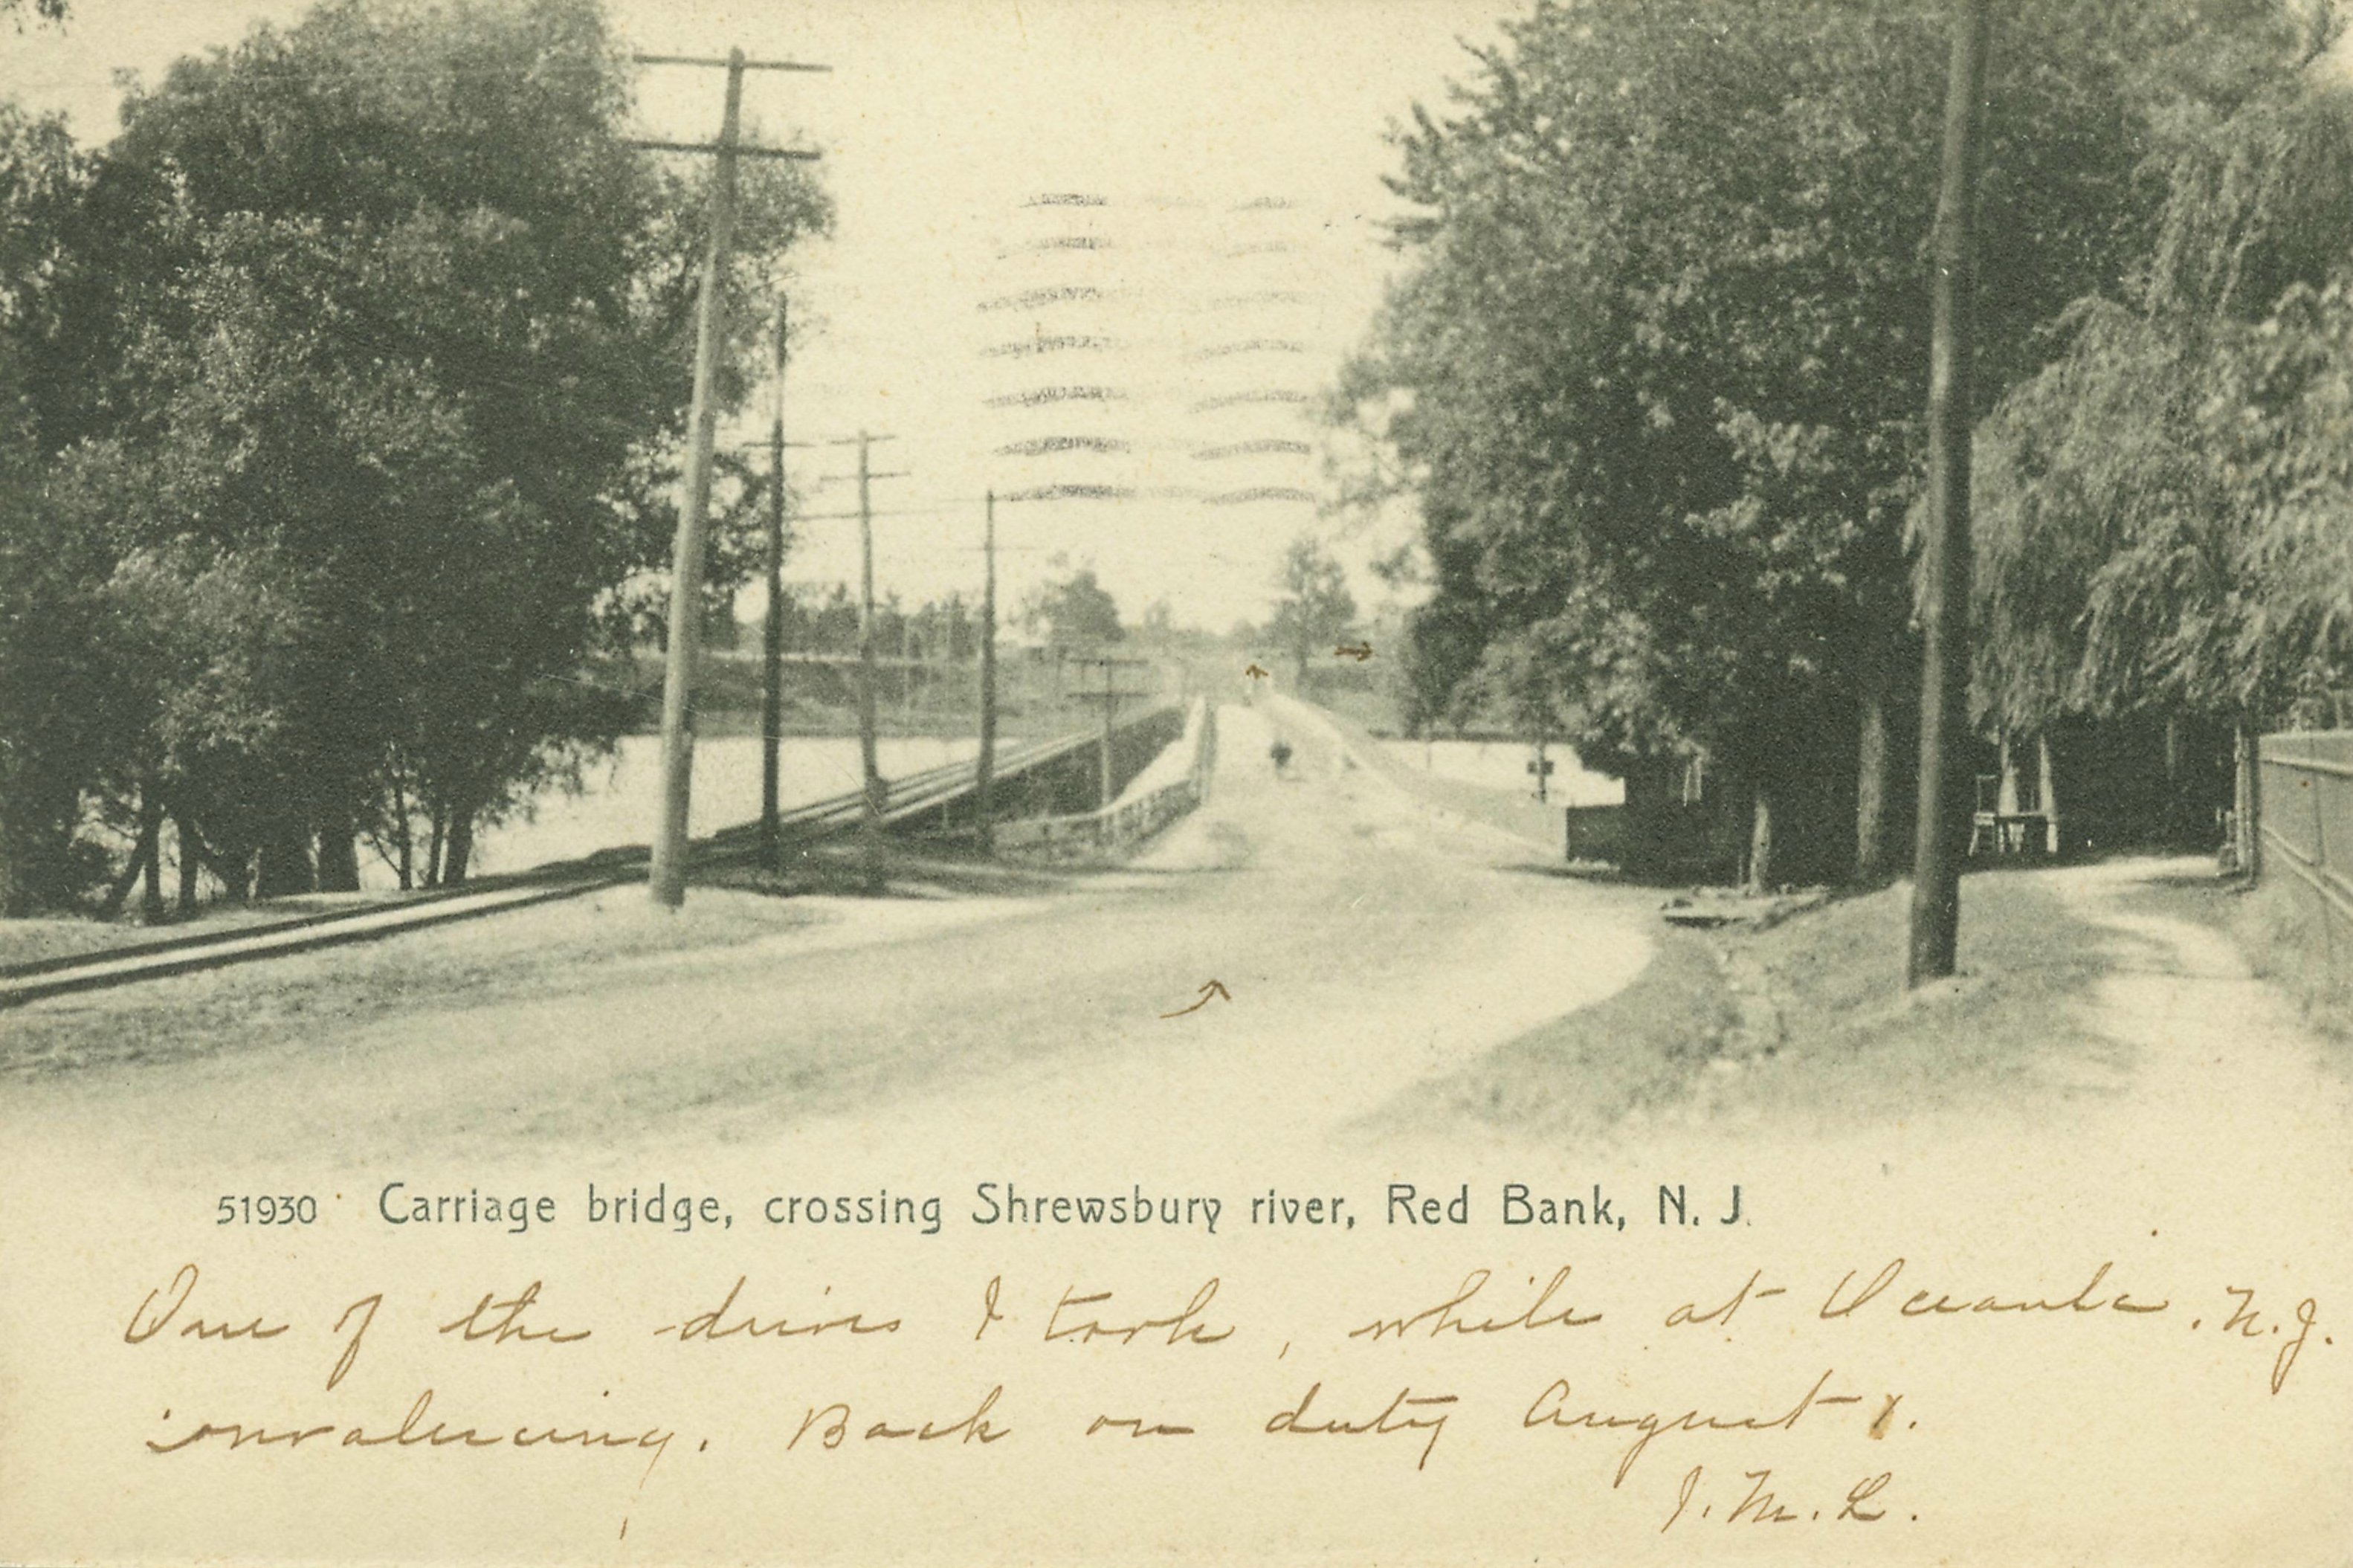 51930 Carriage bridge, crossing Shrewsbury river, Red Bank, N. J.
One of the drives I took, while at Oceanic. N.J.
convalescing. Back on duty August 1.
J. M. L.